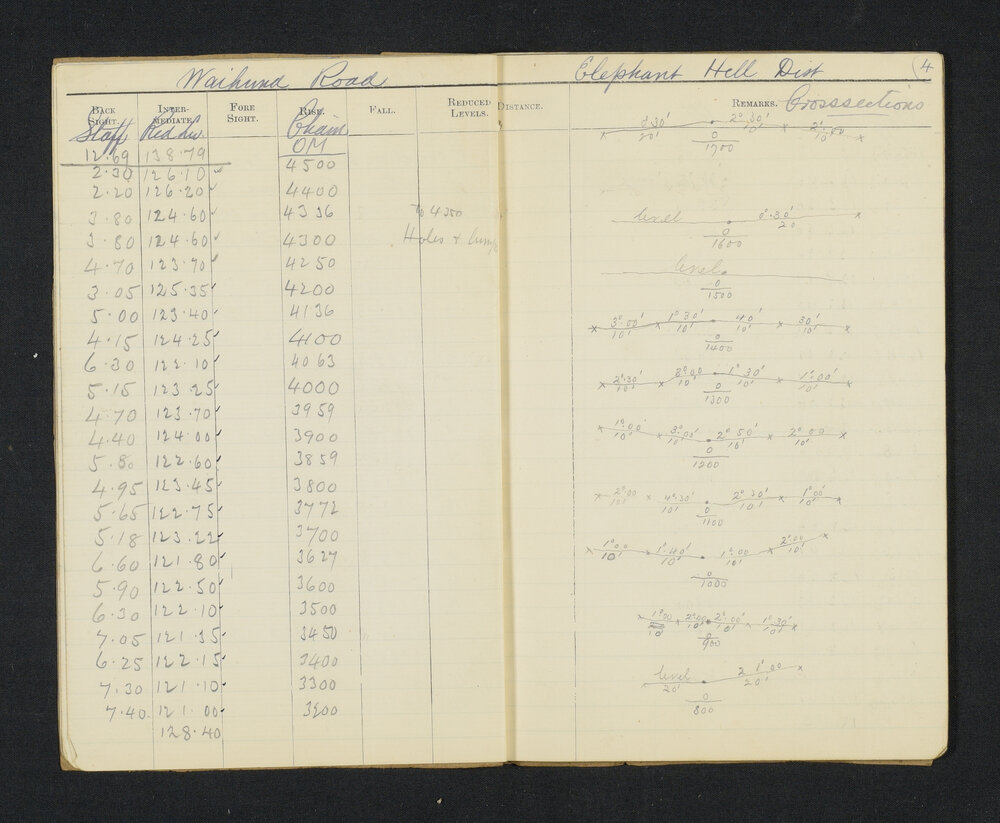 Waihund Road
BACK SIGHT. INTER-MEDIATE. FORE SIGHT. RISE. FALL. REDUCED LEVELS.
Staff Red Lev. Chain
OM
12.69 138.79
2.30 126.10 4500
2.20 126.20 4400
3.80 124.60 4336 to 4300
3.80 124.60 4300 Holes + lumps
4.70 123.70 4250
3.05 125.35 4200
5.00 123.40 4136
4.15 124.25 4100
6.30 122.10 4063
5.15 123.25 4000
4.70 123.70 3959
4.40 124.00 3900
5.80 122.60 3859
4.95 123.45 3800
5.65 122.75 3772
5.18 123.22 3700
6.60 121.80 3627
5.90 122.50 3600
6.30 122.10 3500
7.05 121.35 3450
6.25 122.15 3400
7.30 121.10 3300
7.40 121.00 3200
128.40
Elephant Hill Dist 4
DISTANCE. REMARKS. Crosssections
20' 2°.30' 10' 10'
0
1700
level 0°.30' 20
0
1600
level
0
1500
3°.00' 10' 1°30' 10' 40' 10' 30' 10'
0
1400
2°.30' 10' 10' 1°.30' 10' 1°.00' 10'
0
1300
1°.00 10' 3°.00' 10' 2°50' 10' 2°.00 10'
0
1200
2°.00 10' 4°.30' 10' 2°.30' 10' 1°.00' 10'
0
1100
1°.00 10' 1°.40' 10' 1°.00 10' 2°.00 10'
0
1000
1°.00 10 2°.00 10' 2°.00' 10' 1°.30' 10'
0
900
level 20' 1°.00 20'
0
800